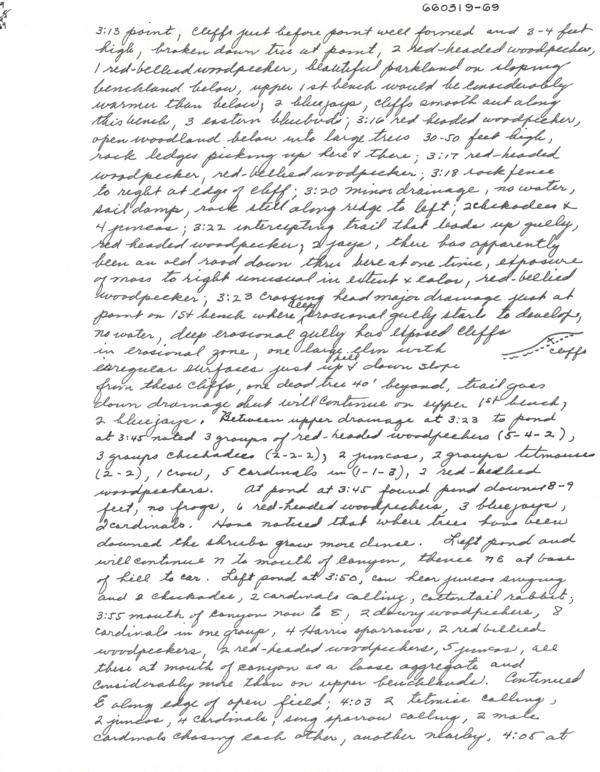 660319-69
3:13 point, cliffs just before point well formed and 3-4 feet
high, broken down tree at point, 2 red-headed woodpecker,
1 red-bellied woodpecker, beautiful parkland on sloping
benchland below, upper 1st bench would be considerably
warmer than below, 2 bluejays, cliffs smooth out along
this bench, 3 eastern bluebirds; 3:16 red headed woodpecker,
open woodland below into large trees 30-50 feet high,
rock ledges picking up here & there; 3:17 red-headed
woodpecker, red-bellied woodpecker; 3:18 rock fence
to right at edge of cliff; 3:20 minor drainage, no water,
soil damp, rock still along ridge to left; 2 chickadees &
4 juncos; 3:22 intercepting trail that leads up gully,
red headed woodpecker, 2 jays, there has apparently
been an old road down thru here at one time, exposure
of moss to right unusual in extent & color, red-bellied
woodpecker; 3:23 crossing head major drainage just at
point on 1st bench where deep erosional gully starts to develop,
no water, deep erosional gully has exposed cliffs
in erosional zone, one large elm with
cliffs
irregular surfaces just up hill & down slope
from these cliffs, one dead tree 40' beyond, trail goes
down drainage but will continue on upper 1st bench,
2 bluejays. Between upper drainage at 3:23 to pond
at 3:45 noted 3 groups of red-headed woodpeckers (5-4-2),
3 groups chickadees (2-2-2), 2 juncos, 2 groups titmouse
(2-2), 1 crow, 5 cardinals in (1-1-3), 2 red-bellied
woodpeckers. At pond at 3:45 found pond down 8-9
feet, no frogs, 6 red-headed woodpeckers, 3 bluejays,
2 cardinals. Have noticed that where trees have been
downed the shrubs grow more dense. Left pond and
will continue N to mouth of canyon, thence NE at base
of hill to car. Left pond at 3:50, can hear juncos singing
and 2 chickadee, 2 cardinals calling, cottontail rabbit;
3:55 mouth of canyon now to E, 2 downy woodpeckers, 8
cardinals in one group, 4 Harris sparrows, 2 red bellied
woodpeckers, 2 red-headed woodpeckers, 5 juncos, all
these at mouth of canyon as a loose aggregate and
considerably more than on upper benchlands. Continued
E along edge of open field; 4:03 2 titmice calling,
2 juncos, 4 cardinals, song sparrow calling, 2 male
cardinals chasing each other, another nearby, 4:05 at